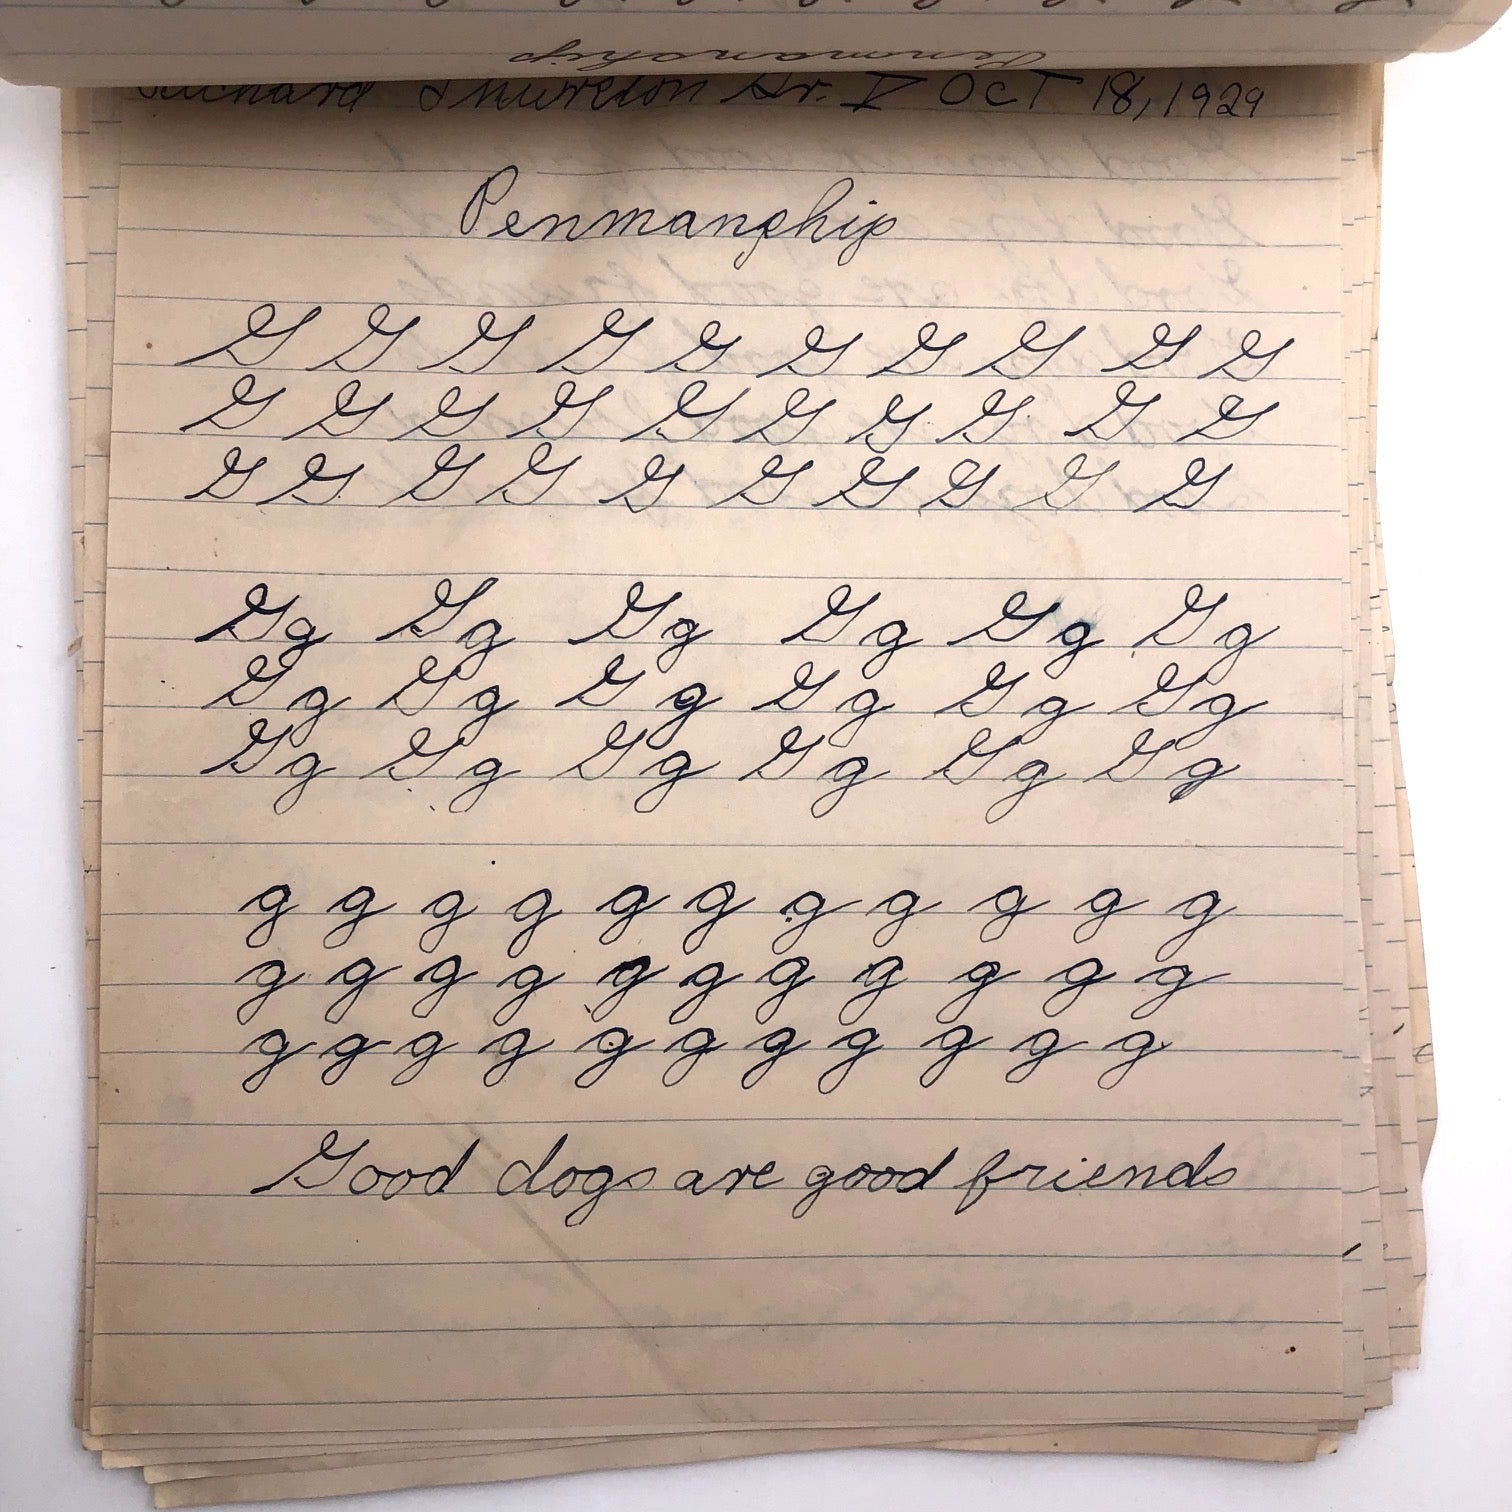 Penmanship
Richard Thurston Gr. V Oct 18, 1929
Penmanship
G G G G G G G G G G
G G G G G G G G G G
G G G G G G G G G G
Gg Gg Gg Gg Gg Gg
Gg Gg Gg Gg Gg Gg
Gg Gg Gg Gg Gg Gg
g g g g g g g g g g g
g g g g g g g g g g g
g g g g g g g g g g g
Good dogs are good friends